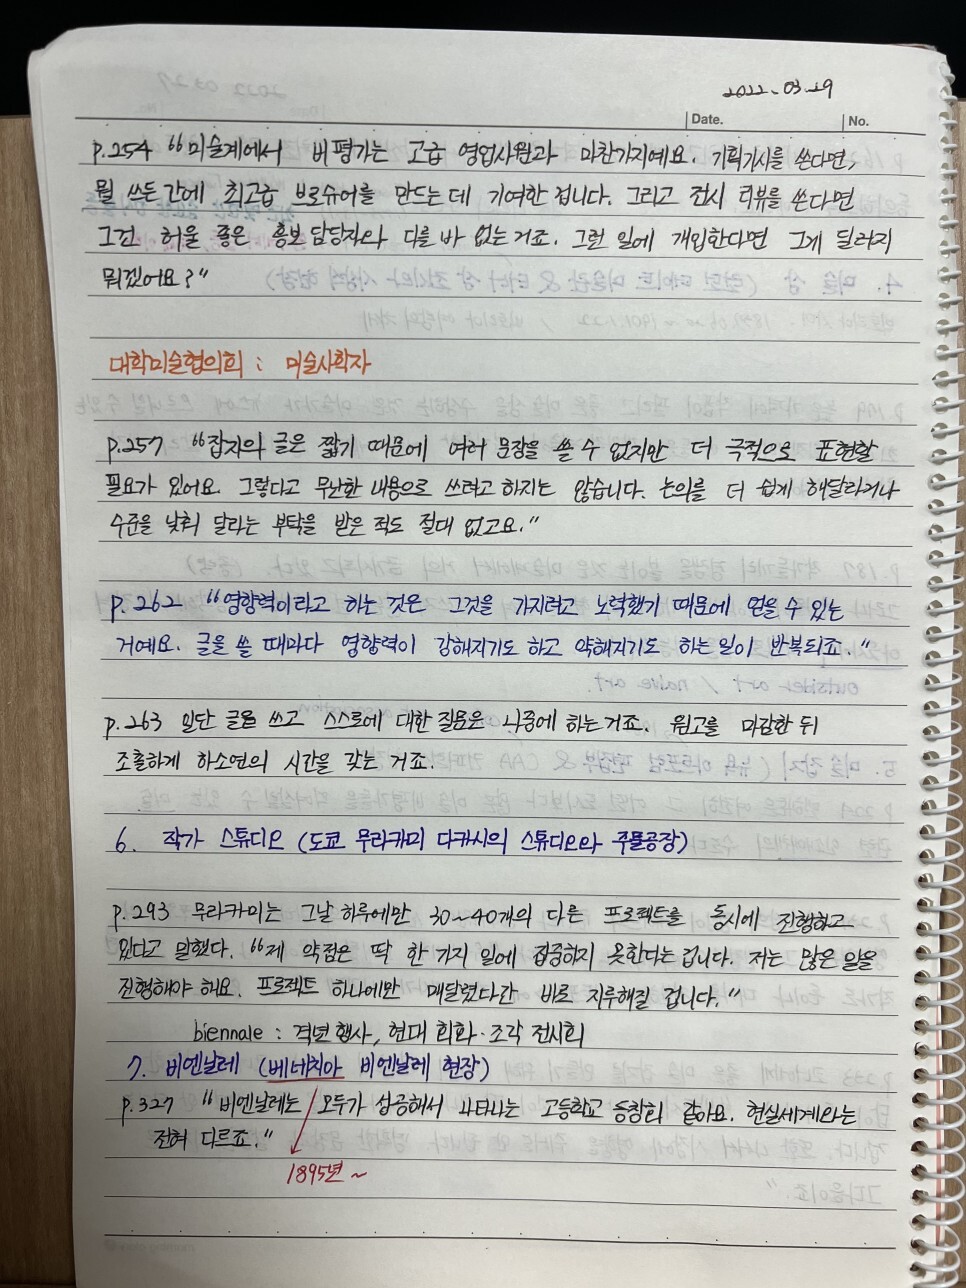 2022.03.29
Date.
No.
p.254 "미술계에서 비평가는 고급 영업사원과 마찬가지예요. 기획기사를 쓴다면,
뭘 쓰든간에 최고급 브로슈어를 만드는 데 기여한 겁니다. 그리고 전시 리뷰를 쓴다면
그건 허울 좋은 홍보 담당자와 다를 바 없는 거죠. 그런 일에 개입한다면 그게 달라지
뭐겠어요?"
대학미술협의회 : 미술사학자
p.257 "잡지의 글은 짧기 때문에 여러 문장을 쓸 수 없지만 더 극적으로 표현할
필요가 있어요. 그렇다고 무난한 내용으로 쓰려고 하지는 않습니다. 논의를 더 쉽게 해달라거나
수준을 낮춰 달라는 부탁을 받은 적도 절대 없고요."
p.262 "영향력이라고 하는 것은 그것을 가지려고 노력했기 때문에 얻을 수 있는
거예요. 글을 쓸 때마다 영향력이 강해지기도 하고 약해지기도 하는 일이 반복되죠."
p.263 일단 글을 쓰고 스스로에 대한 질문은 나중에 하는 거죠. 원고를 마감한 뒤
조촐하게 하소연의 시간을 갖는 거죠.
6. 작가 스튜디오 (도쿄 무라카미 다카시의 스튜디오와 주물공장)
p.293 무라카미는 그날 하루에만 30~40개의 다른 프로젝트를 동시에 진행하고
있다고 말했다. "제 약점은 딱 한 가지 일에 집중하지 못한다는 겁니다. 저는 많은 일을
진행해야 해요. 프로젝트 하나에만 매달렸다간 바로 지루해질 겁니다."
biennale : 격년 행사, 현대 회화·조각 전시회
7. 비엔날레 (베네치아 비엔날레 현장)
p.327 "비엔날레는 모두가 성공해서 나타나는 고등학교 동창회 같아요. 현실세계와는
전혀 다르죠."
1895년 ~